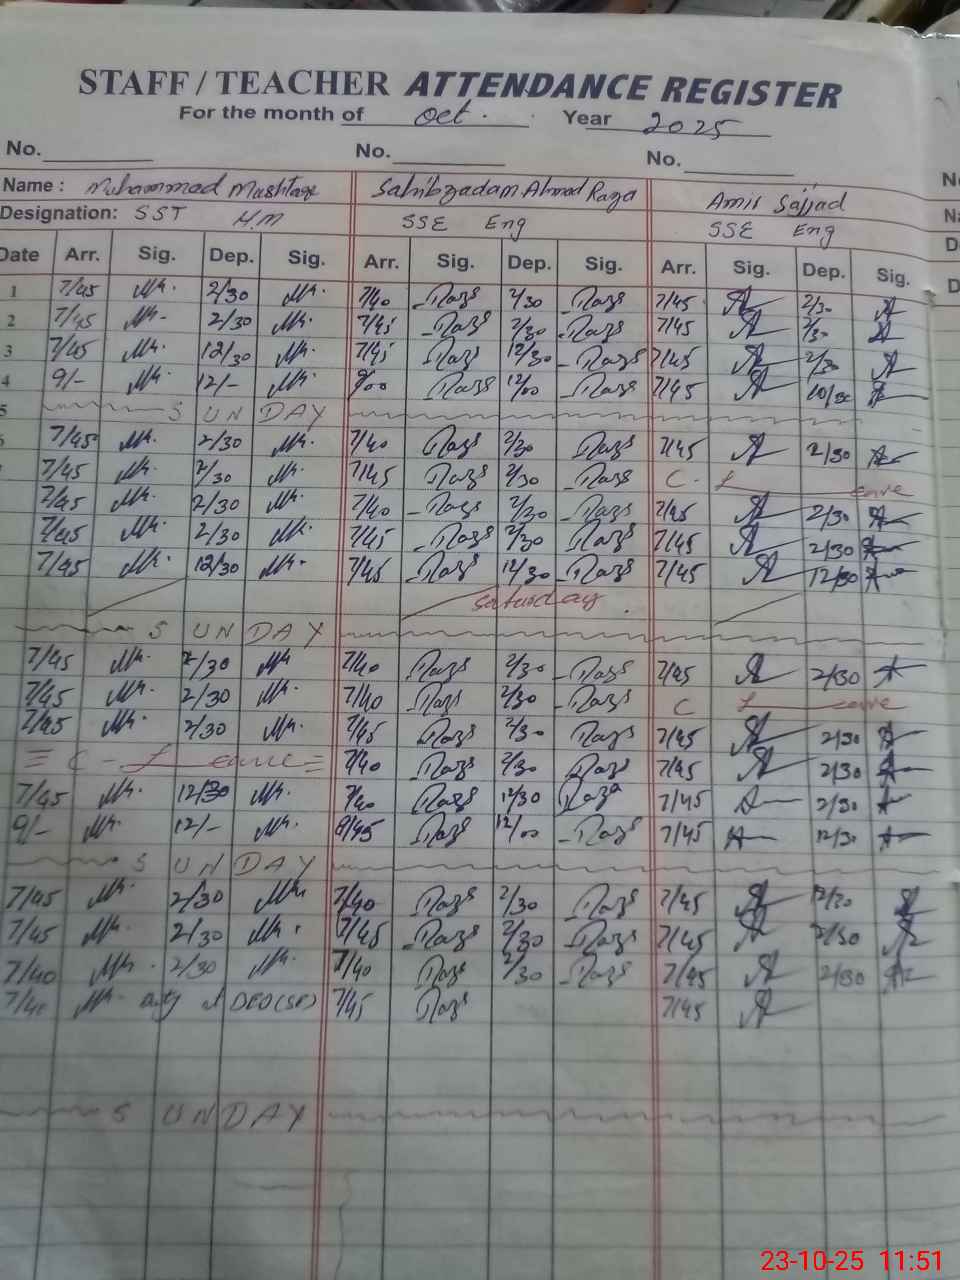 STAFF / TEACHER ATTENDANCE REGISTER
For the month of Oct. Year 2025
No. No. No.
Name : Muhammad Mushtaq Sahibzadam Ahmad Raza Amir Sajjad
Designation: SST H.M SSE Eng SSE Eng
Date Arr. Sig. Dep. Sig. Arr. Sig. Dep. Sig. Arr. Sig. Dep. Sig.
1 7/45 2/30 7/40 Raza 2/30 Raza 7/45 2/30
2 7/45 2/30 7/45 Raza 2/30 Raza 7/45 2/30
3 7/45 12/30 7/45 Raza 12/30 Raza 7/45 2/30
4 9/- 12/- 9/00 Raza 12/00 Raza 7/45 10/30
5 SUNDAY
7/45 2/30 7/40 Raza 2/30 Raza 7/45 2/30
7/45 2/30 7/45 Raza 2/30 Raza C. Leave
7/45 2/30 7/40 Raza 2/30 Raza 7/45 2/30
7/45 2/30 7/45 Raza 2/30 Raza 7/45 2/30
7/45 12/30 7/45 Raza 12/30 Raza 7/45 12/30
Saturday
SUNDAY
7/45 2/30 7/40 Raza 2/30 Raza 7/45 2/30
7/45 2/30 7/40 Raza 2/30 Raza C Leave
7/45 2/30 7/45 Raza 2/30 Raza 7/45 2/30
C - Leave 7/40 Raza 2/30 Raza 7/45 2/30
7/45 12/30 7/40 Raza 12/30 Raza 7/45 2/30
9/- 12/- 8/45 Raza 12/00 Raza 7/45 12/30
SUNDAY
7/45 2/30 7/40 Raza 2/30 Raza 7/45 12/30
7/45 2/30 7/45 Raza 2/30 Raza 7/45 2/30
7/40 2/30 7/40 Raza 2/30 Raza 7/45 2/30
7/40 DEO(SE) 7/45 Raza 7/45
SUNDAY
23-10-25 11:51